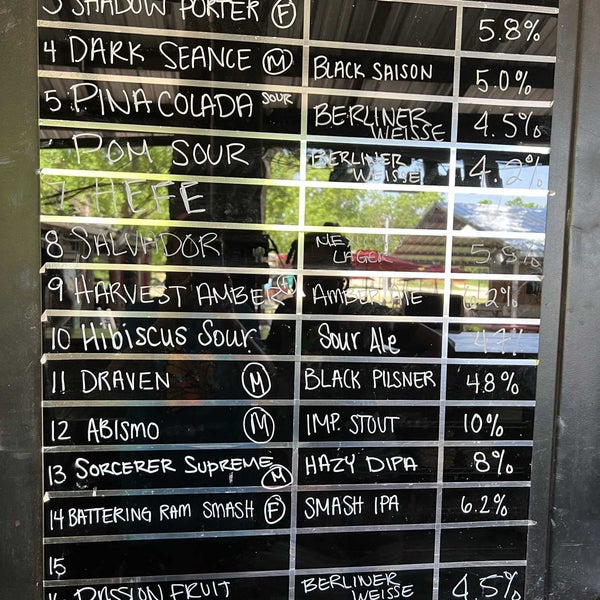 3 SHADOW PORTER F 5.8%
4 DARK SEANCE M BLACK SAISON 5.0%
5 PINA COLADA SOUR BERLINER WEISSE 4.5%
POM SOUR BERLINER WEISSE 4.2%
7 HEFE
8 SALVADOR LAGER
9 HARVEST AMBER AMBER ALE 6.2%
10 Hibiscus Sour Sour Ale 4.7%
11 DRAVEN M BLACK PILSNER 4.8%
12 ABISMO M IMP. STOUT 10%
13 SORCERER SUPREME M HAZY DIPA 8%
14 BATTERING RAM SMASH F SMASH IPA 6.2%
15
PASSION FRUIT BERLINER WEISSE 4.5%